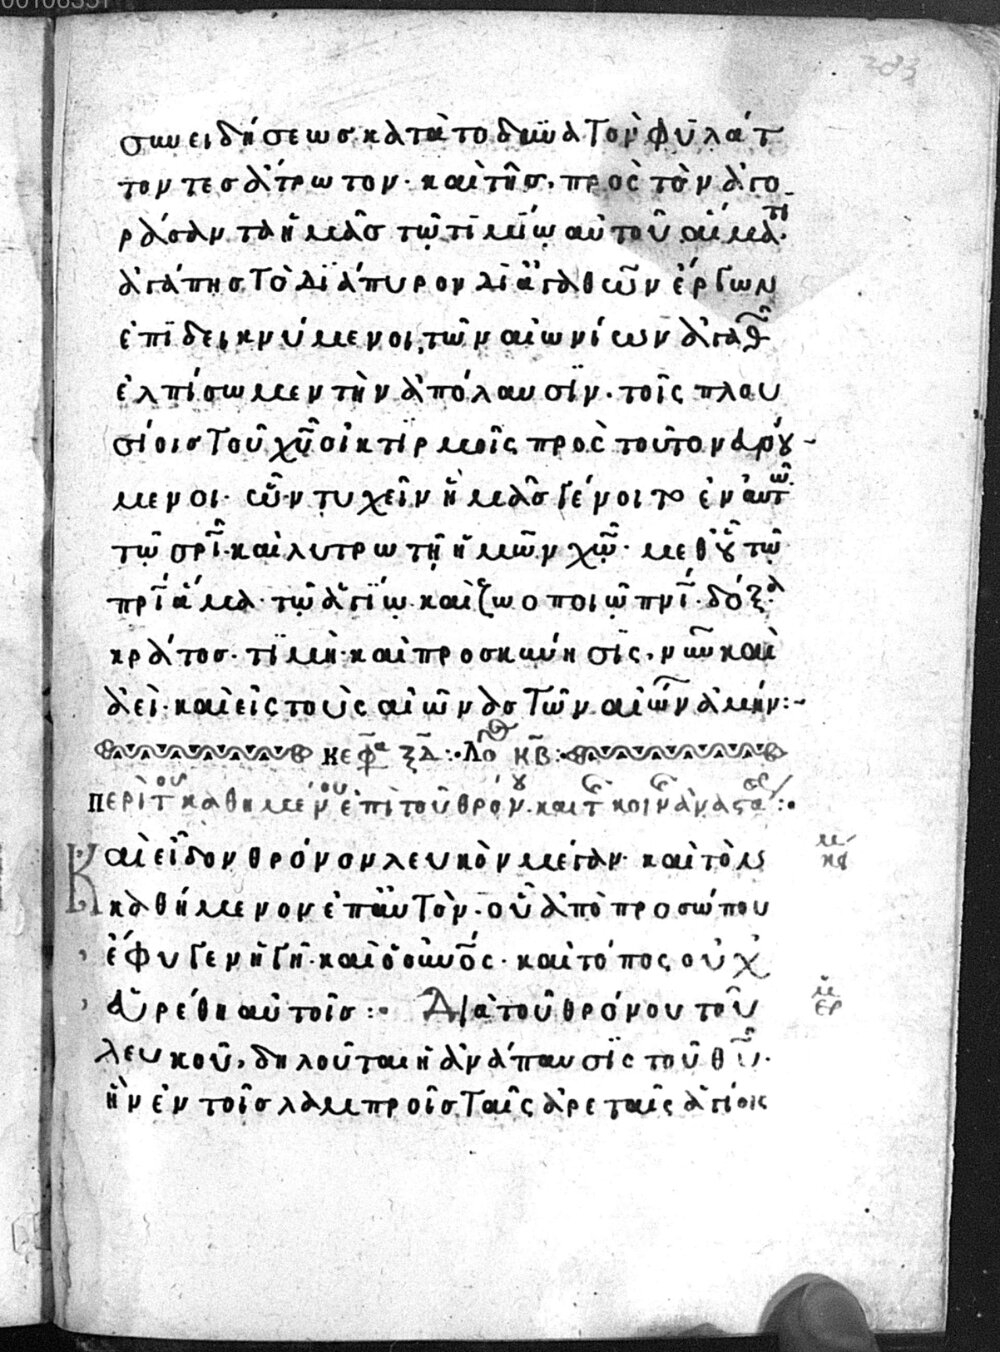 συνειδήσεως κατὰ τὸ δυνατὸν φυλάτ
τοντες ἄτρωτον· καὶ τῆς πρὸς τὸν ἀγο
ράσαντα ἡμᾶς τῷ τιμίῳ αὐτοῦ αἵματι
ἀγάπης τὸ διάπυρον δι' ἀγαθῶν ἔργων
ἐπιδεικνύμενοι, τῶν αἰωνίων ἀγαθῶ
ἐλπίσωμεν τὴν ἀπόλαυσιν· τοῖς πλου
σίοις τοῦ χῦ οἰκτιρμοῖς πρὸς τοῦτον
μενοι· ὧν τυχεῖν ἡμᾶς γένοιτο ἐν αὐτῶ
τῷ σρῖ καὶ λυτρωτῇ ἡμῶν χῷ· μεθ' οὗ τῷ
πρῒ ἅμα τῷ ἁγίῳ καὶ ζωοποιῷ πνῒ· δόξα
κράτος· τιμὴ καὶ προσκύνησις, νῦν καὶ
ἀεὶ καὶ εἰς τοὺς αἰῶνας τῶν αἰώνων ἀμήν:~
κεφα ξδ:· λό κβ:·
περὶ τοῦ καθημένου ἐπὶ τοῦ θρόνου καὶ τῆς κοινῆς ἀναστάσε:·
Καὶ εἶδον θρόνον λευκὸν μέγαν· καὶ τὸν
κείμενον
καθήμενον ἐπ' αὐτὸν· οὗ ἀπὸ προσώπου
ἔφυγεν ἡ γῆ· καὶ ὁ οὐνος· καὶ τόπος οὐχ
εὑρέθη αὐτοῖς:· Διὰ τοῦ θρόνου τοῦ
ἑρ
λευκοῦ, δηλοῦται ἡ ἀνάπαυσις τοῦ θῦ·
ἣν ἐν τοῖς λαμπροῖς ταῖς ἀρεταῖς ἁγίοις